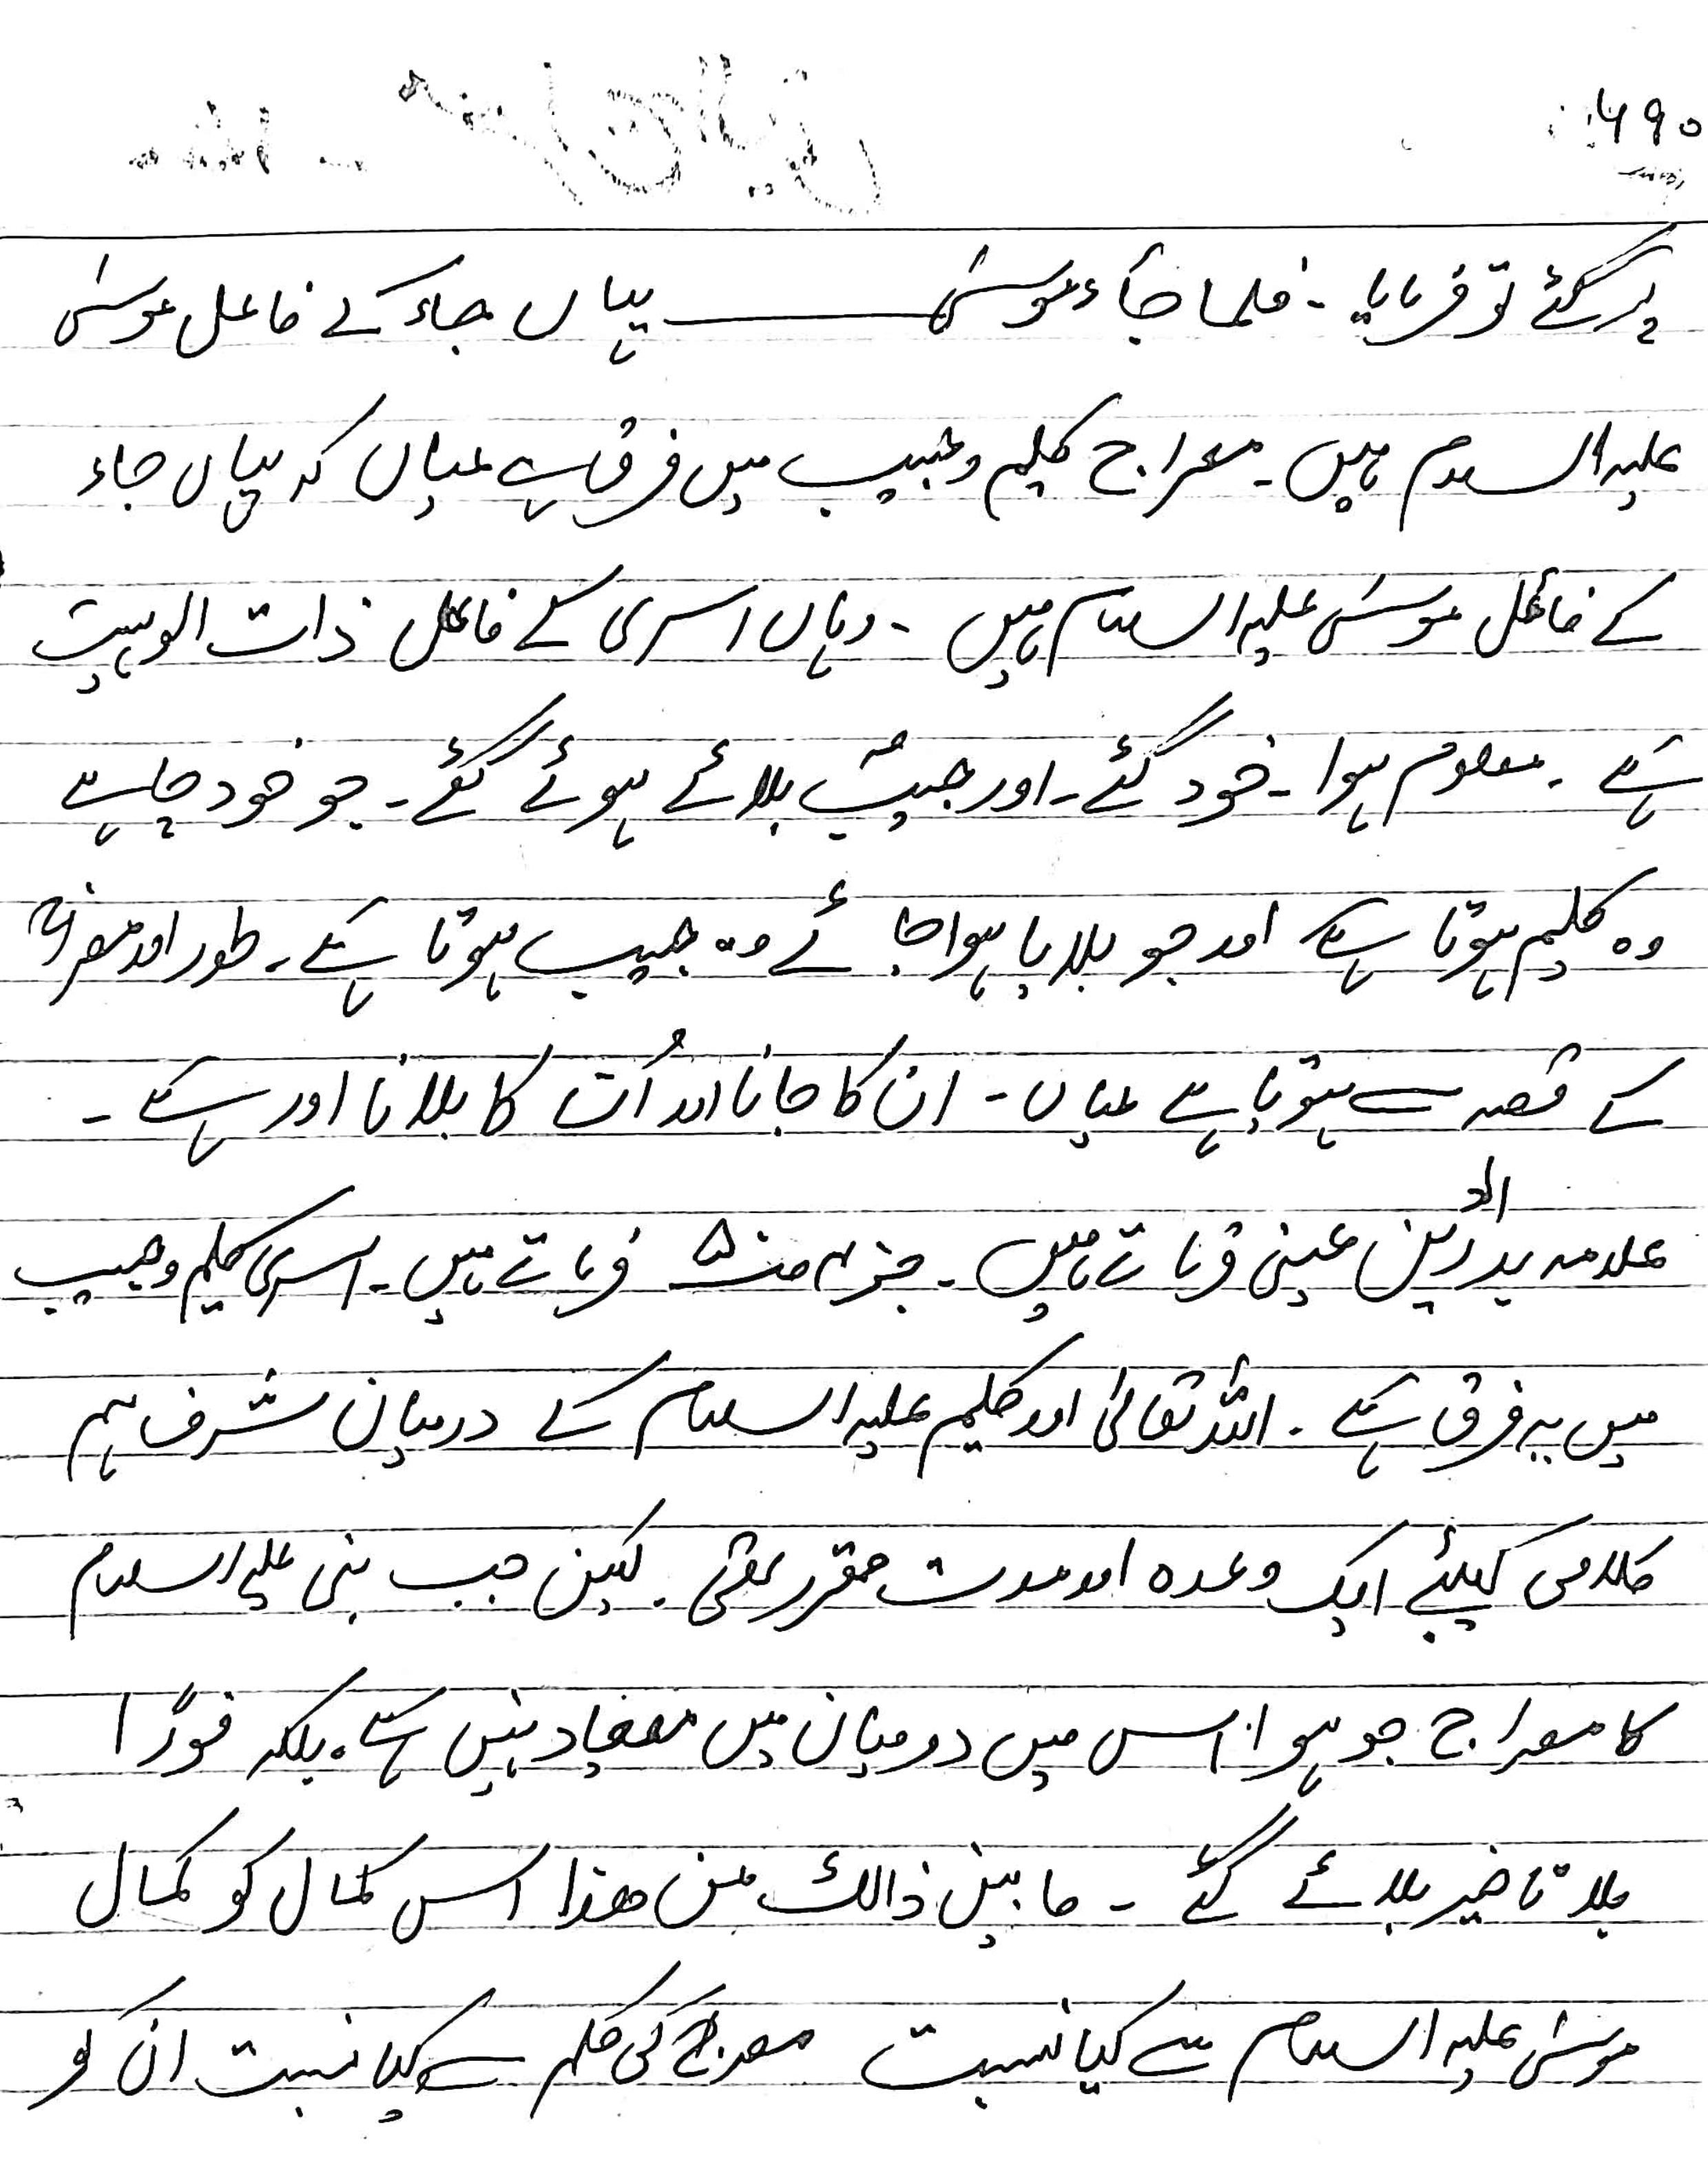 ۶۹۰
پر گئے تو فرمایا ۔ فلما جاٰء موسیٰ ـــــــ یہاں جاء کے فاعل موسیٰ
علیہ السلام ہیں ۔ معراج کلیم و حبیب میں فرق ہے عیاں کہ یہاں جاء
کے فاعل موسیٰ علیہ السلام ہیں ۔ وہاں اسریٰ کے فاعل ذات الوہیت
ہے ۔ معلوم ہوا ۔ خود گئے ۔ اور حبیبؐ بلائے ہوئے گئے ۔ جو خود چاہے
وہ کلیم ہوتا ہے اور جو بلایا ہوا جائے وہ حبیب ہوتا ہے ۔ طور اور معراج
کے قصہ سے ہوتا ہے عیاں ۔ ان کا جانا اور اُن کا بلانا اور ہے ۔
علامہ بدر الدین عینی فرماتے ہیں ۔ فرماتے ہیں ۔ اسریٰ کلیم و حبیب
میں یہ فرق ہے ۔ اللہ تعالیٰ اور کلیم علیہ السلام کے درمیان شرف ہم
کلامی کیلئے ایک وعدہ اور مدت مقرر تھی ۔ لیکن جب نبی علیہ السلام
کا معراج جو ہوا اس میں درمیان میں میعاد نہیں ہے ۔ بلکہ فورًا
بلا تاخیر بلائے گئے ۔ ما بین ذالک من ھذا اس کمال کو کمال
موسیٰ علیہ السلام سے کیا نسبت معراج کی کلیم سے کیا نسبت ان کو